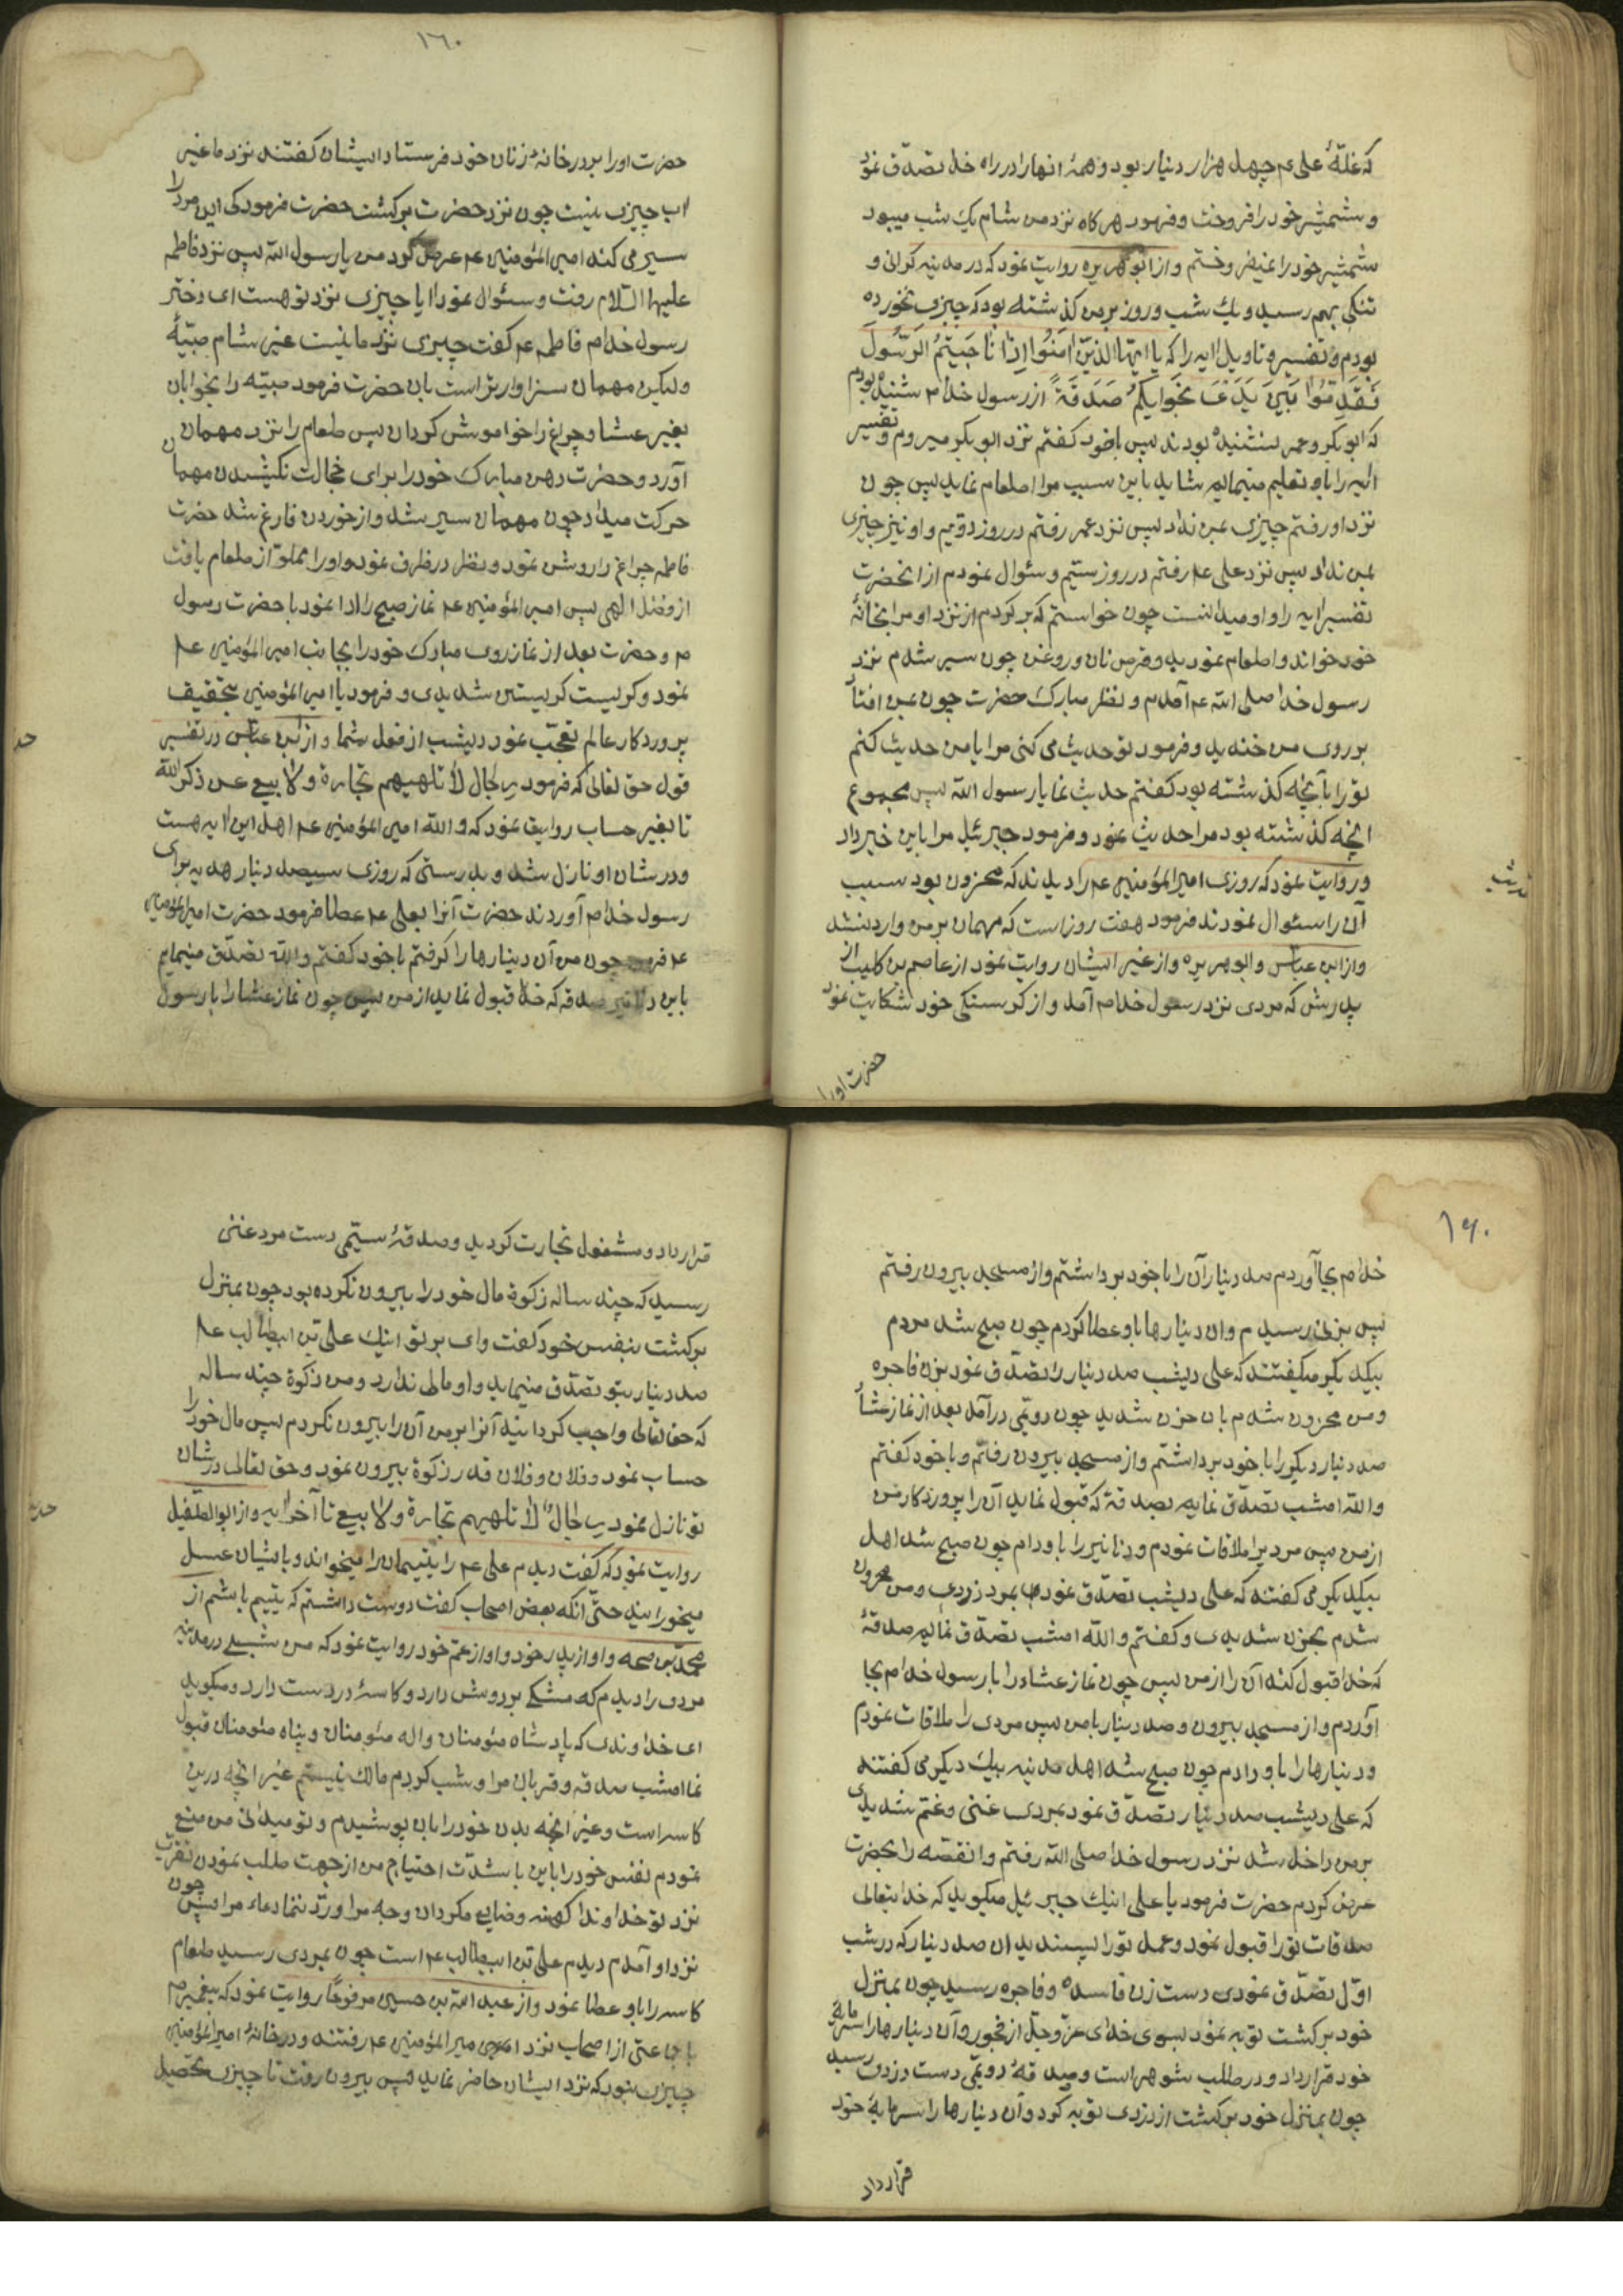 که غلّهٔ علی عم چهل هزار دینار بود و همهٔ انها را در راه خدا تصدّق نمود
و شمشیر خود را فروخت و فرمود هرکاه نزد من شام یك شب میبود
شمشیر خود را نمیفروختم و از ابوهریره روایت نمود که در مدینه کرانی و
تنکی بهم رسید و یك شب و روز بر من کذشته بود که چیزی نخورده
بودم و تفسیر و تاویل ایه را که یا ایّها الذینَ امَنُوا اِذا ناجَیتُمُ الرَّسُولَ
فَقَدِّمُوا بَینَ یَدَی نَجوایکُم صَدَقَةً از رسول خدا م شنیده بودم
که ابوبکر و عمر نشنیده بودند پس باخود کفتم نزد ابوبکر میروم و تفسیر
ایه را باو تعلیم مینمایم شاید باین سبب مرا اطعام نماید پس چون
نزد او رفتم چیزی بمن نداد پس نزد عمر رفتم در روز دویّم و او نیز چیزی
بمن نداد پس نزد علی عم رفتم در روز سیّم و سئوال نمودم از انحضرت
تفسیر ایه را و او میدانست چون خواستم که بر کردم از نزد او مرا بخانهٔ
خود خواند و اطعام نمود بدو قرص نان و روغن چون سیر شدم نزد
رسول خدا صلی الله عم آمدم و نظر مبارك حضرت چون بمن افتاد
بر روی من خندید و فرمود تو حدیث می کنی مرا یا من حدیث کنم
تو را بآنچه کذشته بود کفتم حدیث نما یا رسول الله پس مجموع
انچه کذشته بود مرا حدیث نمود و فرمود جبرئیل مرا باین خبر داد
و روایت نمود که روزی امیرالمؤمنین عم را دیدند که محزون بود سبب
آن را سئوال نمودند فرمود هفت روز است که مهمان بر من وارد نشد
و از ابن عباس و ابوهریره و از غیر ایشان روایت نمود از عاصم بن کلیب از
پدرش که مردی نزد رسول خدا م آمد و از کرسنکی خود شکایت نمود
حضرت اورا
١٦٠
حضرت او را بر در خانهٔ زنان خود فرستاد ایشان کفتند نزد ما غیر
اب چیزی نیست چون نزد حضرت برکشت حضرت فرمود کی این مرد را
سیر می کند امیرالمؤمنین عم عرض کرد من یا رسول الله پس نزد فاطمه
علیها السّلام رفت و سئوال نمود ایا چیزی نزد تو هست ای دختر
رسول خدا م فاطمه عم کفت چیزی نزد ما نیست غیر شام صبیّهٔ
ولیکن مهمان سزاوارتر است بان حضرت فرمود صبیّه را بخوابان
بغیر عشا و چراغ را خواموش کردان پس طعام را نزد مهمان
آورد و حضرت دهن مبارك خود را برای خجالت نکشیدن مهمان
حرکت میداد چون مهمان سیر شد و از خوردن فارغ شد حضرت
فاطمه چراغ را روشن نمود و نظر در ظرف نمود و او را مملوّ از طعام یافت
از فضل الهی پس امیرالمؤمنین عم نماز صبح را ادا نمود با حضرت رسول
م و حضرت بعد از نماز روی مبارك خود را بجانب امیرالمؤمنین عم
نمود و کریست کریستن شدیدی و فرمود یا امیرالمؤمنین بتحقیق
پروردکار عالم تعجّب نمود دیشب از فعل شما و از ابن عبّاس در تفسیر
قول حق تعالی که فرمود رِجال لا تلهیهم تجارة ولا بیع عن ذکر الله
تا بغیر حساب روایت نمود که والله امیرالمؤمنین عم اهل این ایه هست
و در شان او نازل شد و بدرستی که روزی سیصد دینار هدیه برای
رسول خدا م آوردند حضرت آنرا بعلی عم عطا فرمود حضرت امیرالمؤمنین
عم فرمود چون من آن دینارها را کرفتم باخود کفتم والله تصدّق مینمایم
باین دنانیر صدقه که خدا قبول نماید از من پس چون نماز عشا را با رسول
١٦٠
خدا م بجا آوردم صد دینار آن را با خود برداشتم و از مسجد بیرون رفتم
پس بزنی رسیدم و ان دینارها باو عطا کردم چون صبح شد مردم
بیکدیکر میکفتند که علی دیشب صد دینار را تصدّق نمود بزن فاجره
و من محزون شدم بان حزن شدید چون دویّمی درآمد بعد از نماز عشا
صد دینار دیکر را با خود برداشتم و از مسجد بیرون رفتم و با خود کفتم
والله امشب تصدّق نمایم بصدقهٔ که قبول نماید آن را پروردکار من
از من پس مردیرا ملاقات نمودم و دنانیر را باو دادم چون صبح شد اهل
بیکدیکر می کفتند که علی دیشب تصدّق نمود بمرد دزدی و من محزون
شدم بحزن شدیدی و کفتم والله امشب تصدّق نمایم صدقهٔ
که خدا قبول کند آن را از من پس چون نماز عشاء را با رسول خدا م بجا
آوردم و از مسجد بیرون و صد دینار با من پس مردی را ملاقات نمودم
و دینارها را باو دادم چون صبح شد اهل مدینه بیك دیکر می کفتند
که علی دیشب صد دینار تصدّق نمود بمردی غنی و غم شدیدی
بر من داخل شد نزد رسول خدا صلی الله رفتم و انقصّه را بحضرت
عرض کردم حضرت فرمود یا علی اینك جبرئیل میکوید که خدایتعالی
صدقات تو را قبول نمود و عمل تو را پسندید ان صد دینار که در شب
اوّل تصدّق نمودی دست زن فاسده و فاجره رسید چون بمنزل
خود برکشت توبه نمود بسوی خدای عزّ و جلّ از فجور و آن دینارها را سرمایهٔ
خود قرار داد و در طلب شوهر است و صدقهٔ دویّمی دست دزدی رسید
چون بمنزل خود برکشت از دزدی توبه کرد و آن دینارها را سرمایهٔ خود
قرار داد
قرار داد و مشغول تجارت کردید و صدقهٔ سیّمی دست مرد غنی
رسید که چند ساله زکوة مال خود را بیرون نکرده بود چون بمنزل
برکشت بنفس خود کفت وای بر تو اینك علی بن ابیطالب عم
صد دینار بتو تصدّق مینماید و او مالی ندارد و من زکوة چند ساله
که حق تعالی واجب کردانید آنرا بر من آن را بیرون نکردم پس مال خود را
حساب نمود و فلان و فلان قدر زکوة بیرون نمود و حق تعالی در شان
تو نازل نمود رِجالٌ لا تلهیهم تجارة ولا بیع تا آخر ایه و از ابوالطّفیل
روایت نمود که کفت دیدم علی عم را یتیمان را میخواند و بایشان عسل
میخورانید حتّی آنکه بعض اصحاب کفت دوست داشتم که یتیم باشم از
محمّد بن صمه و او از پدر خود و او از عمّ خود روایت نمود که من شبی در مدینه
مردی را دیدم که مشکی بر دوش دارد و کاسهٔ در دست دارد و میکوید
ای خداوندی که پادشاه مئومنان و اله مئومنان و پناه مئومنان قبول
نما امشب صدقه و قربان مرا و شب کردم مالك نیستم غیر انچه درین
کاسه است و غیر انچه بدن خود را بان پوشیدم و تو میدانی من منع
نمودم نفس خود را باین با شدّت احتیاج من از جهت طلب نمودن تقرّب
نزد تو خداوندا کهنه و ضایع مکردان وجه مرا و ردّ ننما دعاء مرا پس چون
نزد او آمدم دیدم علی بن ابیطالب عم است چون بمردی رسید طعام
کاسه را باو عطا نمود و از عبدالله بن حسین مرفوعًا روایت نمود که پیغمبر م
با جماعتی از اصحاب نزد امیرالمؤمنین عم رفتند و در خانهٔ امیرالمؤمنین
چیزی نبود که نزد ایشان حاضر نماید پس بیرون رفت تا چیزی تحصیل